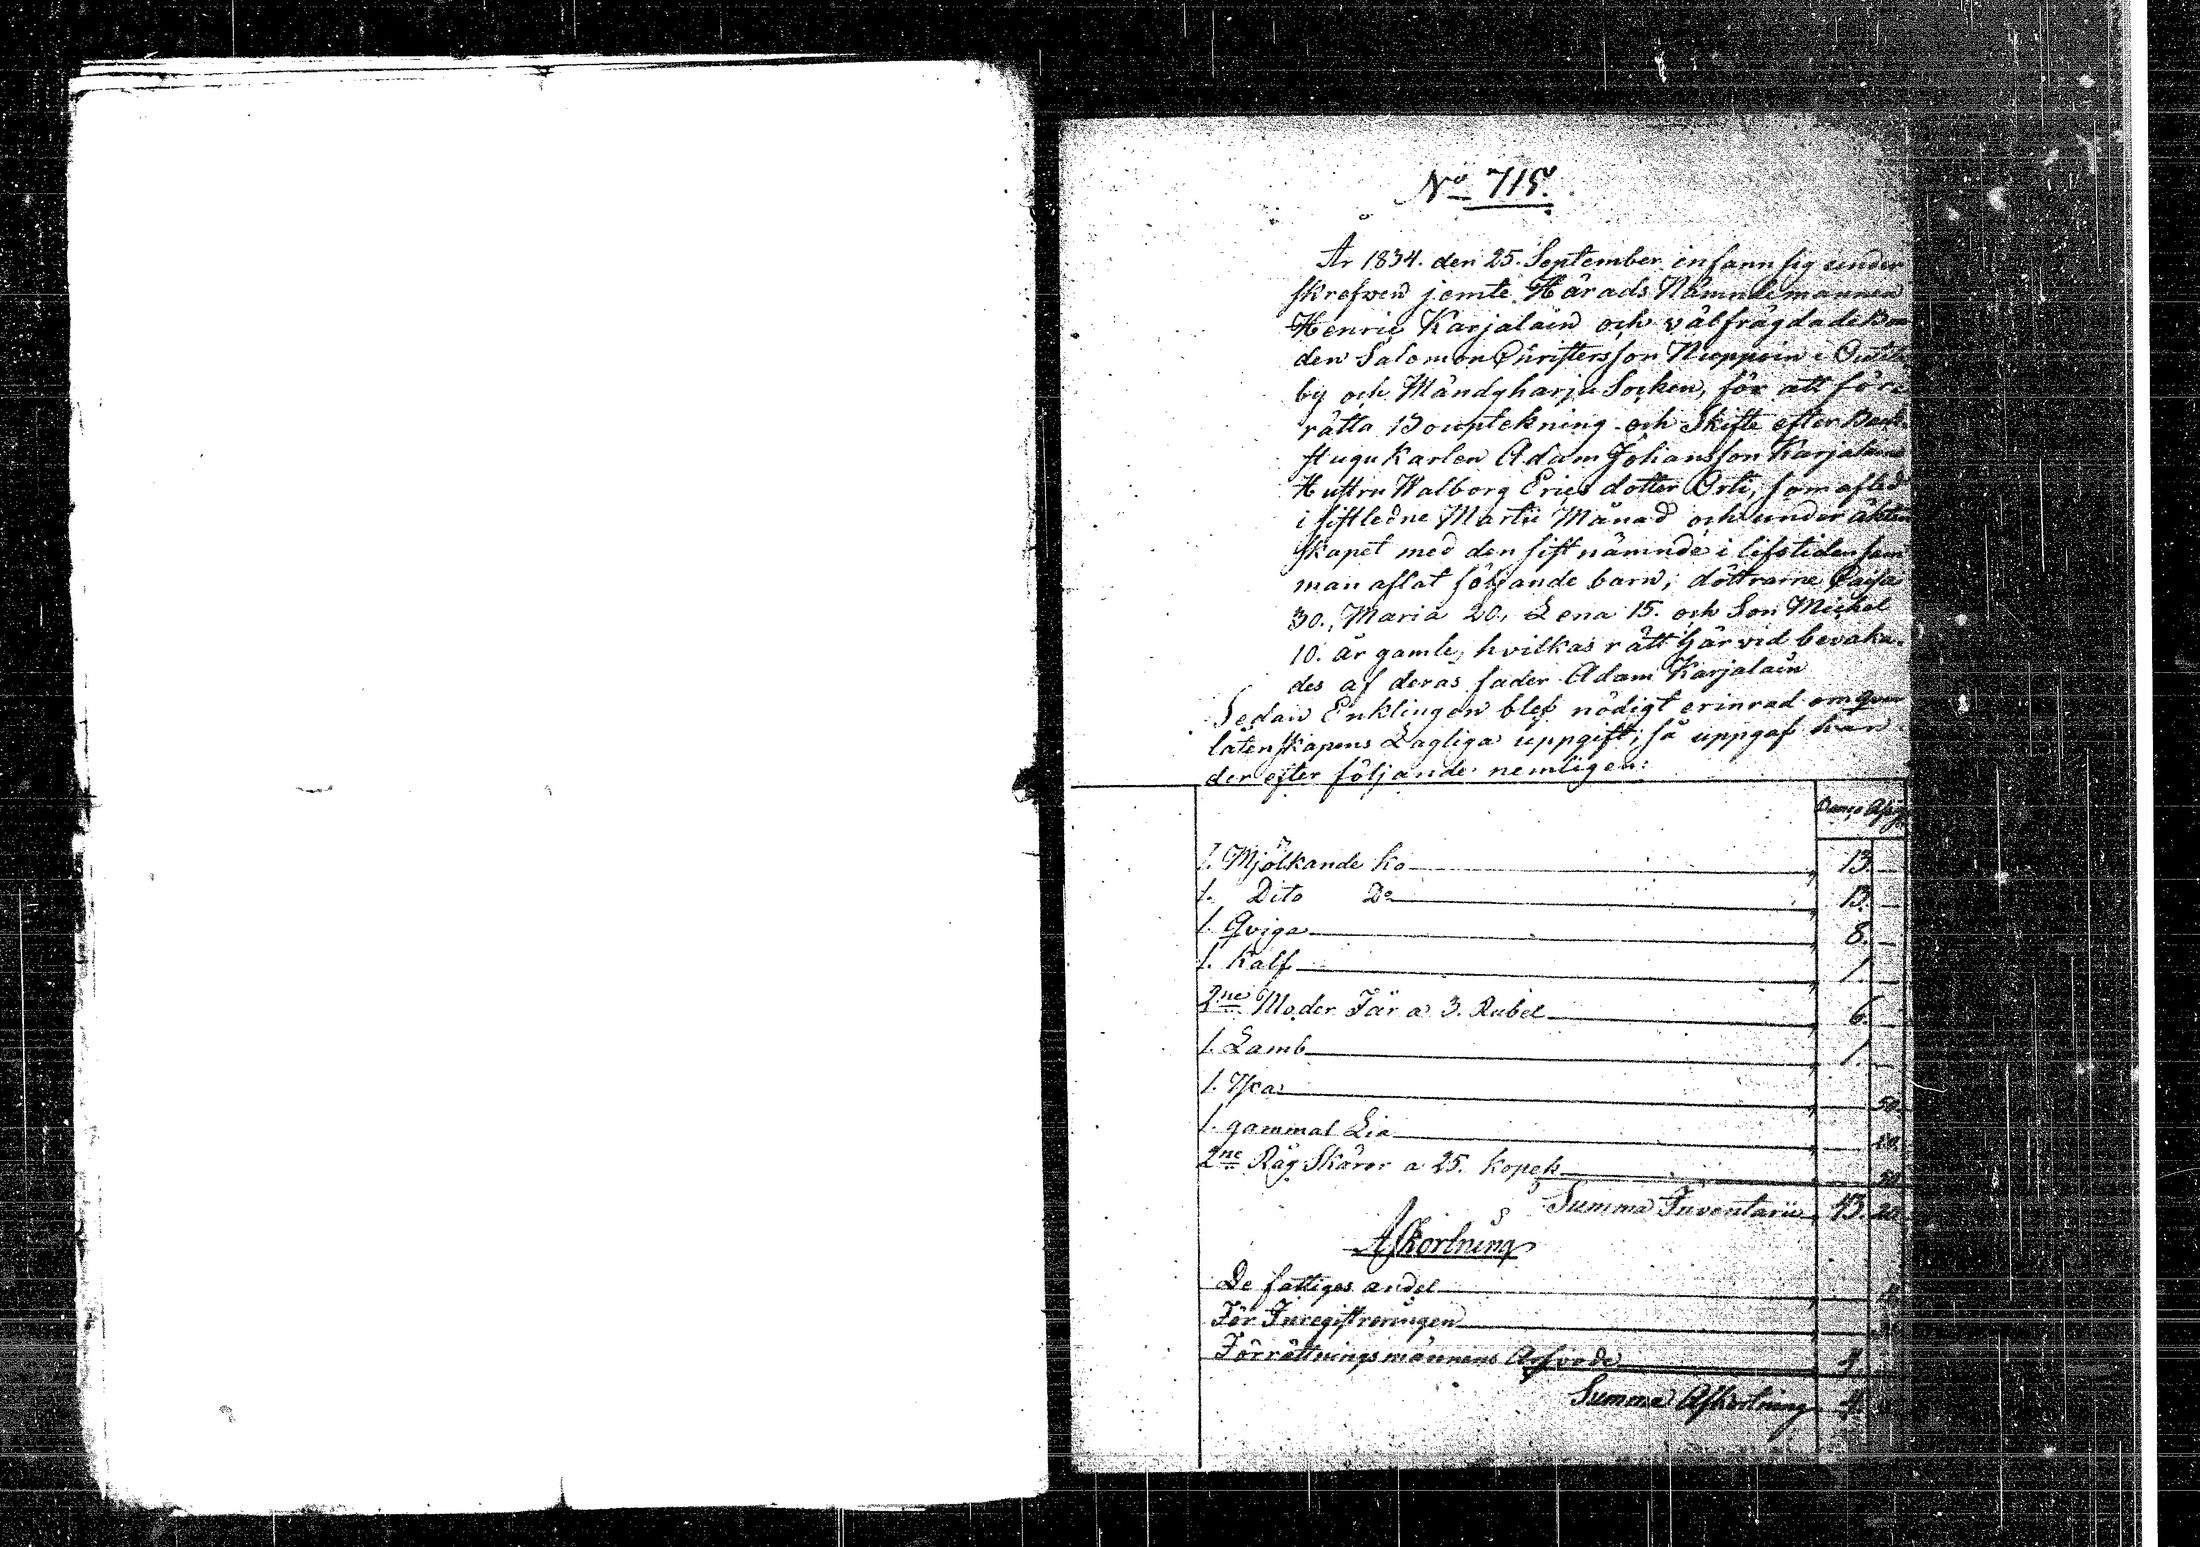 No 715.
År 1834. den 25. September infann sig under
skrefwen jemte Härads Nämndemannen
Henric Karjalain och välfrägdade Bon
den Salomon Christersson Nuppoin i
by och Mändyharju Socken, för att före
rätta Bouptekning och Skifte efter Back
stugu Karlen Adam Johansson Karjalains
Hustru Walborg Ericsdotter Orti, som afled
i sistledne Martii Månad och under äkten
skapet med den sistnämnde i lifstiden sam
man aflat följande barn; döttrarne Caisa
30., Maria 20., Lena 15. och Son Michel
10. år gamle, hvilkas rätt härvid bevaka-
des af deras fader Adam Karjalain
Sedan Enklingen blef nödigt erinrad om qvar
låtenskapens Lagliga uppgift; så uppgaf han
der efter följande nemligen:
1. Mjölkande Ko 13. —
1. Dito Do 13. —
1. Qviga 8. —
1. Kalf 1. —
2ne Moder Får a 3. Rubel 6. —
1. Lamb 1. —
1. Yxa 50.
1. gammal Lia 20.
2ne Råg Skäror a 25. Kopek 50.
Summa Inventarii 43. 20.
Afkortning
De fattiges andel
För Inregistreringen
Förrättningsmännens Arfvode
Summa Afkortning